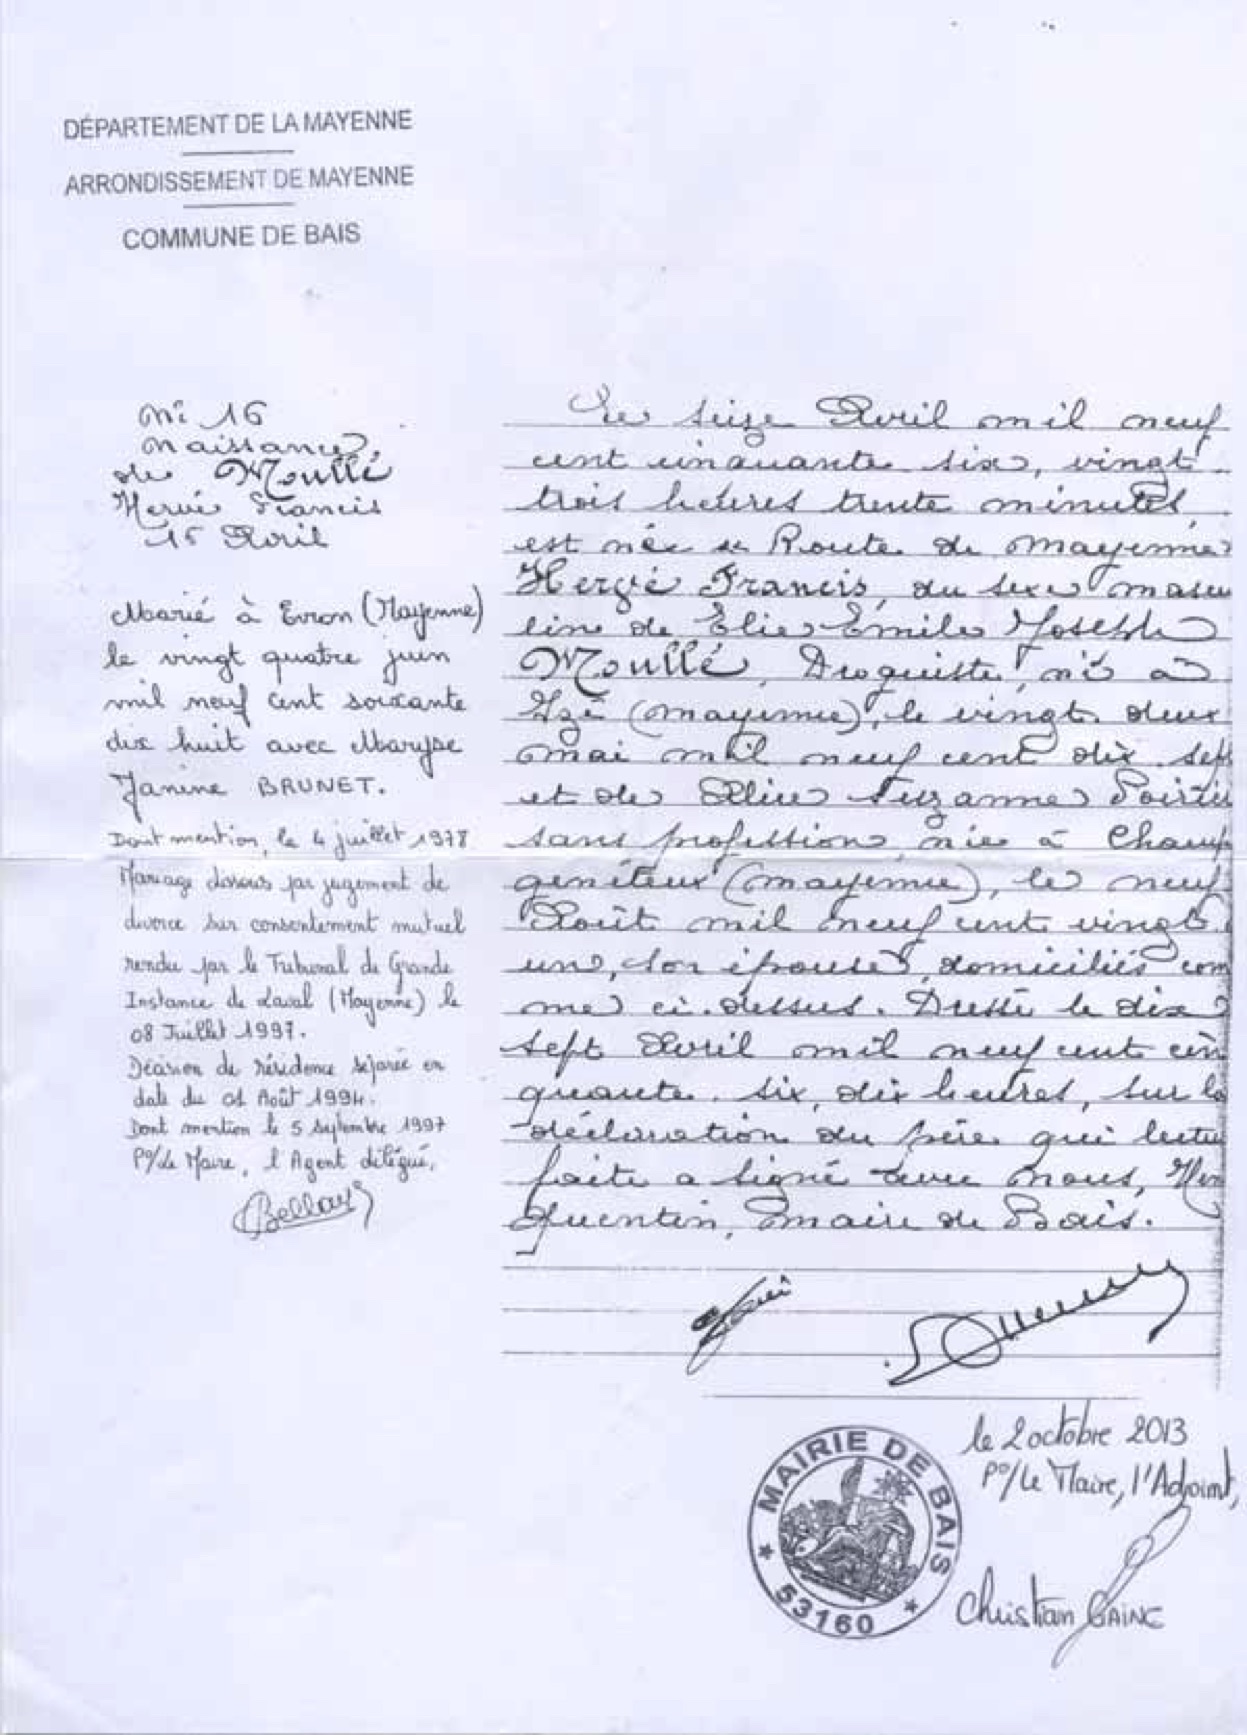 DÉPARTEMENT DE LA MAYENNE
ARRONDISSEMENT DE MAYENNE
COMMUNE DE BAIS
N° 16
Naissance
de Moullé
Hervé Francis
Avril
Marié à Evron (Mayenne)
le vingt quatre juin
mil neuf cent soixante
dix huit avec Maryse
Janine BRUNET.
Dont mention, le 4 juillet 1978
Mariage dissous par jugement de
divorce sur consentement mutuel
rendu par le Tribunal de Grande
Instance de Laval (Mayenne) le
08 Juillet 1997.
Décision de résidence séparée en
date du 01 Août 1994.
Dont mention le 5 septembre 1997
P°/Le Maire, l'Agent délégué,
Le seize Avril mil neuf
cent cinquante six, vingt
trois heures trente minutes,
est né Route de Mayenne
Hervé Francis, du sexe mascu
lin de Elie Emile Joseph
Moullé, Droguiste, né à
Izé (Mayenne), le vingt deux
mai mil neuf cent dix sept
et de Suzanne
sans profession, née à Champ
généteux (Mayenne), le neuf
Août mil neuf cent vingt
un, son épouse, domiciliés com
me ci-dessus. Dressé le dix
sept Avril mil neuf cent cin
quante six, dix heures, sur la
déclaration du père qui lectu
faite a signé avec nous,
Quentin, maire de Bais.
le 2 octobre 2013
P°/Le Maire, l'Adjoint,
MAIRIE DE BAIS
★ 53160 ★
Christian GAINC